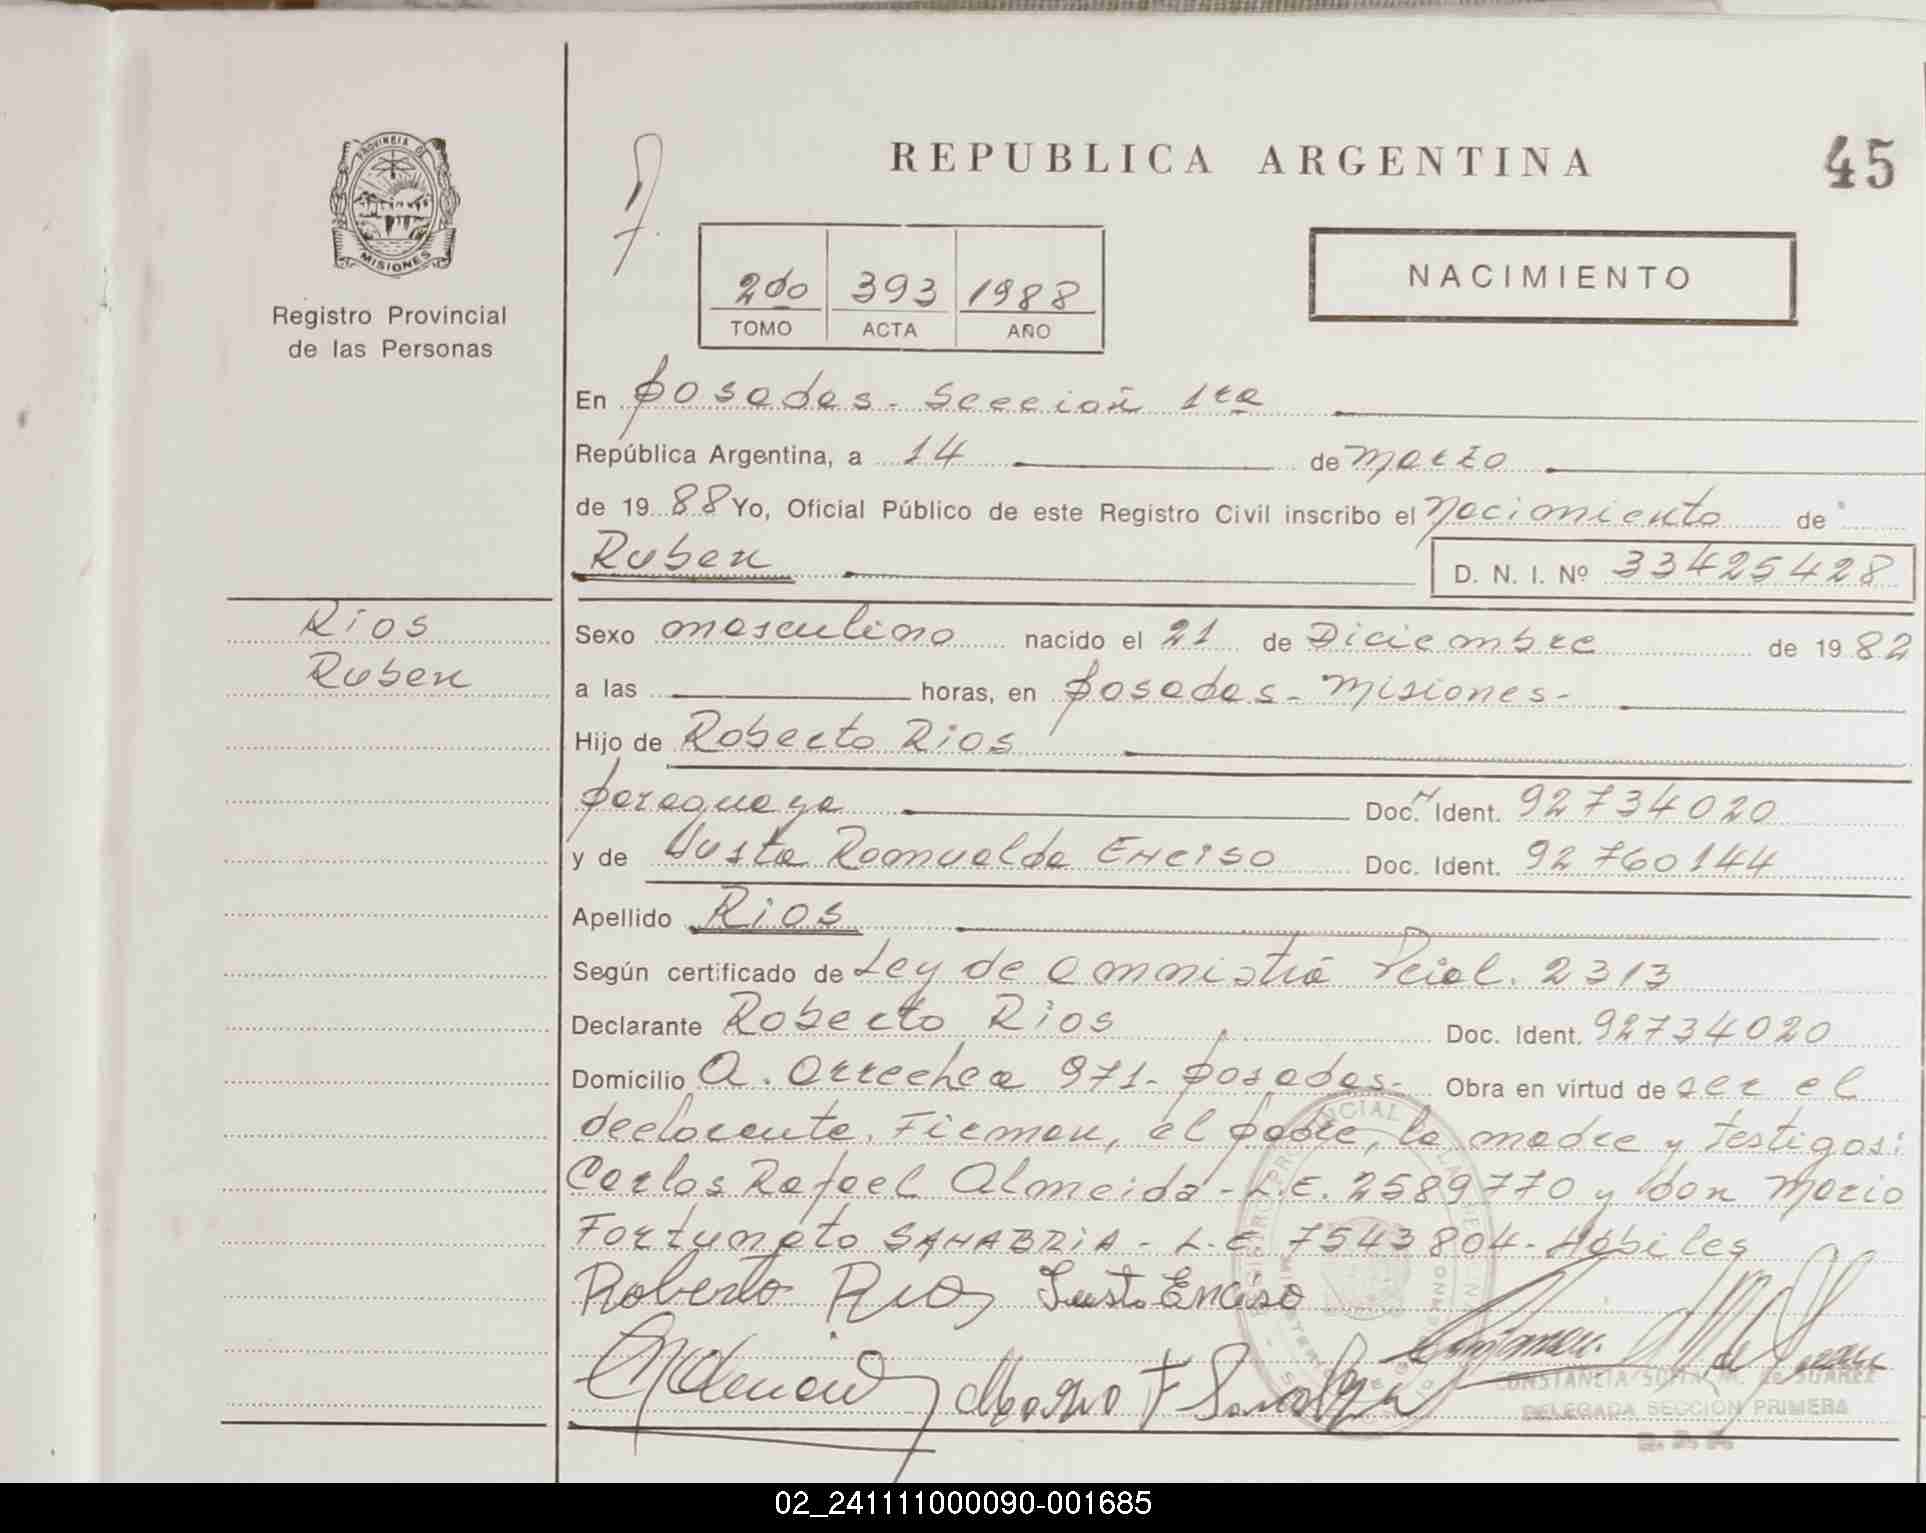 PROVINCIA DE
MISIONES
Registro Provincial
de las Personas
Rios
Ruben
REPUBLICA ARGENTINA
45
2do 393 1988
TOMO ACTA AÑO
NACIMIENTO
En Posadas - Sección 1ra
República Argentina, a 14 de Marzo
de 1988 Yo, Oficial Público de este Registro Civil inscribo el Nacimiento de
Ruben D. N. I. Nº 33425428
Sexo masculino nacido el 21 de Diciembre de 1982
a las horas, en Posadas - Misiones -
Hijo de Roberto Rios
paraguaya Doc. Ident. 92734020
y de Justa Romualda Enciso Doc. Ident. 92760144
Apellido Rios
Según certificado de Ley de amnistia Pcial. 2313
Declarante Roberto Rios Doc. Ident. 92734020
Domicilio A. Arrechea 971 - Posadas - Obra en virtud de ser el
declarante. Firman, el padre, la madre y testigos:
Carlos Rafael Almeida - L.E. 2589770 y don Mario
Fortunato SANABRIA - L.E. 7543804 - Hábiles
Roberto Rios Justa Enciso
Mario F Sanabria
CONSTANCIA SOFIA M. de SUAREZ
DELEGADA SECCION PRIMERA
02_241111000090-001685